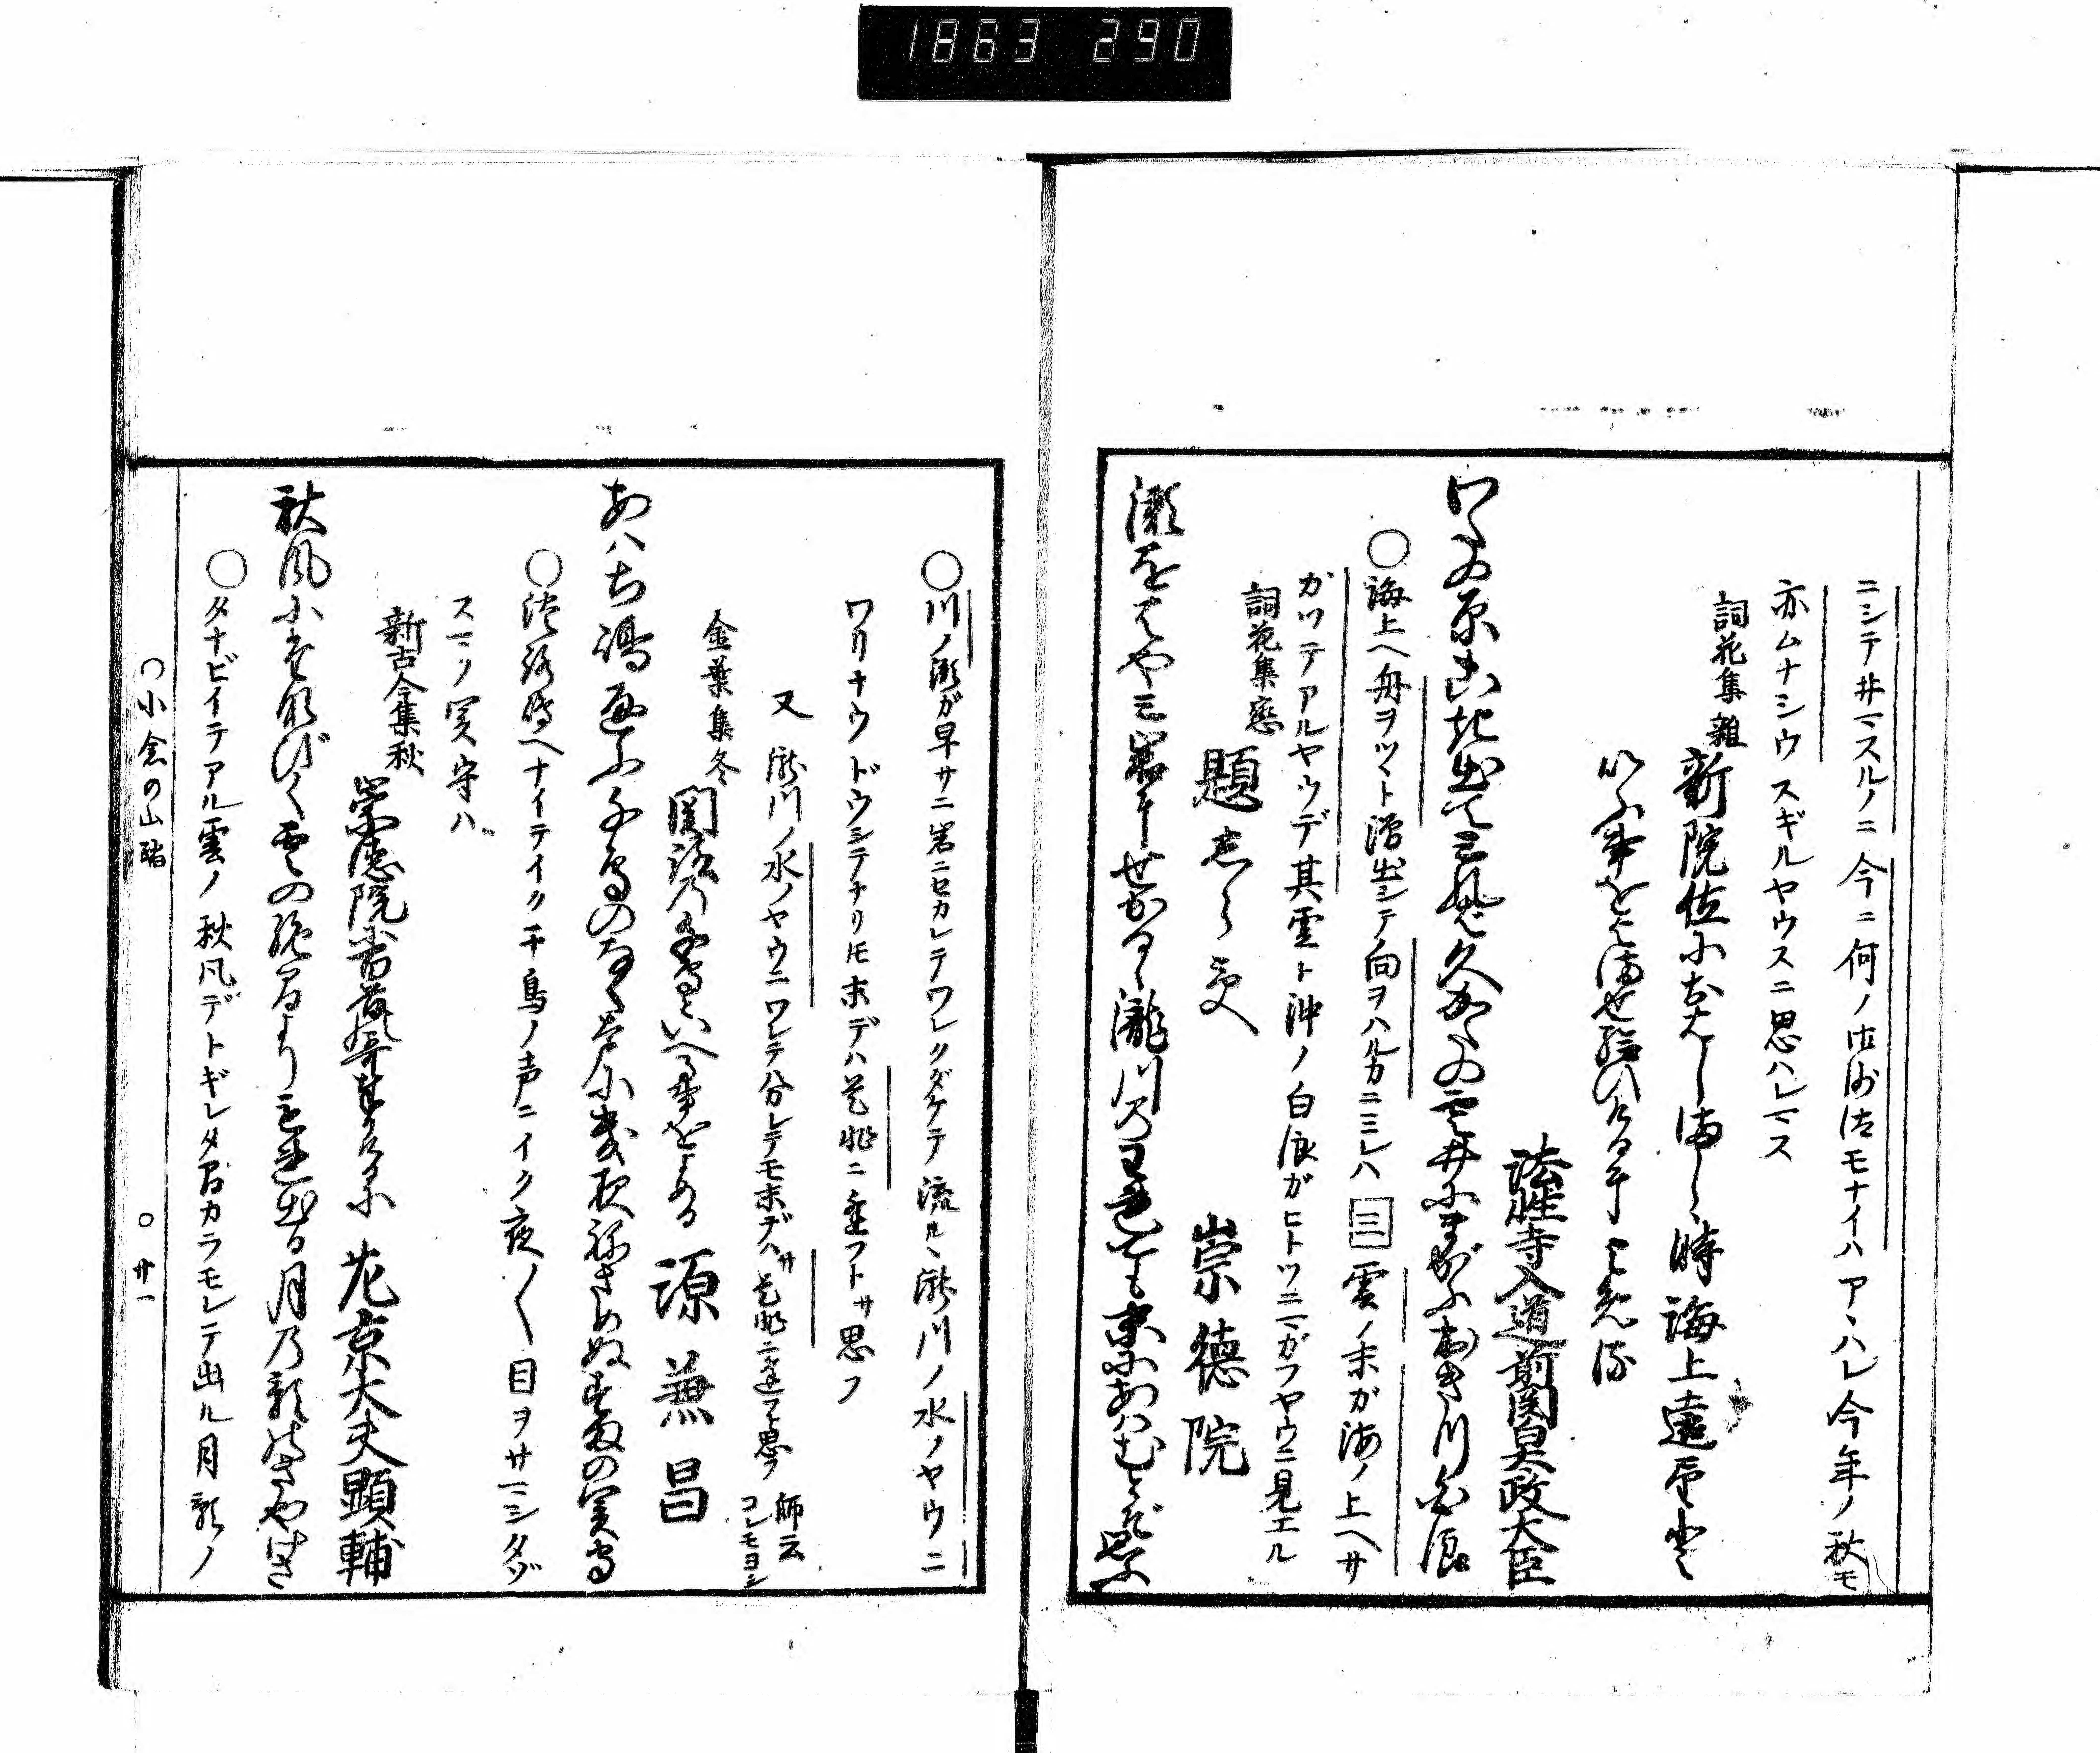 1863 290
ニシテ井マスルノニ今ニ何ノ御沙汰モナイハアヽハレ今年ノ秋モ
亦ムナシウスギルヤウスニ思ハレマス
詞花集雜
新院位におはしまし〻時海上遠望と
いふ事をよませ給ひけるによめる
法性寺入道前関白太政大臣
わたの原こき出てみれば久かたの雲井にまがふおきつ白浪
○海上ヘ舟ヲツヽト漕出シテ向ヲハルカニミレハ三雲ノ末ガ海ノ上ヘサ
ガツテアルヤウデ其雲ト沖ノ白浪ガヒトツニマガフヤウニ見エル
詞花集戀
題しらす
崇徳院
瀬をはやみ岩にせかるゝ瀧川のわれても末にあはむとぞ思ふ
○川ノ瀬ガ早サニ岩ニセカレテワレクダケテ流ルヽ瀧川ノ水ノヤウニ
ワリナウドウシテナリトモ末デハ是非ニ逢フトサ思フ
又瀧川ノ水ノヤウニワレテ分レテモ末デハサ是非ニ逢フト思フ 師云コレモヨシ
金葉集冬
関路乃千鳥といへる事をよめる
源兼昌
あはち嶋通ふ千鳥のなく声に幾夜ねさめぬ須磨の関守
○淡路嶋ヘナイテイク千鳥ノ声ニイク夜〱目ヲサマシタゾ
スマノ関守ハ
新古今集秋
崇徳院に百首哥奉りけるに
左京大夫顕輔
秋風にたなびく雲の絶間よりもれ出る月の影のさやけさ
○タナビイテアル雲ノ秋風デトギレタ間カラモレテ出ル月影ノ
○小倉の山踏
○廿一